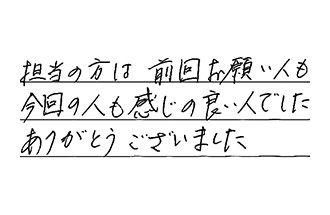 担当の方は 前回お願い人も
今回の人も感じの良い人でした
ありがとうございました